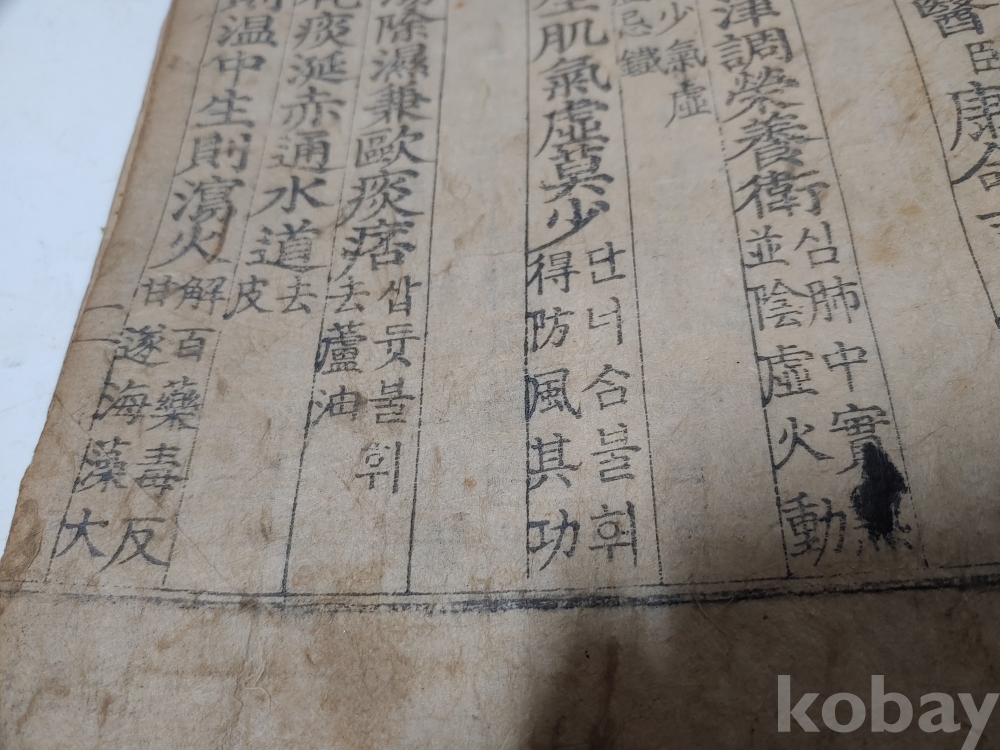 醫臣康命
津調榮養衛
심肺中實
並陰虛火動
少氣虛
忌鐵
肌氣虛莫少
단너ᄉᆞᆷ불휘
得防風其功
除濕兼歐痰痞
삽듯불휘
去蘆油
痰涎赤通水道
去
皮
則溫中生則瀉火
解百藥毒反
甘遂海藻大
kobay